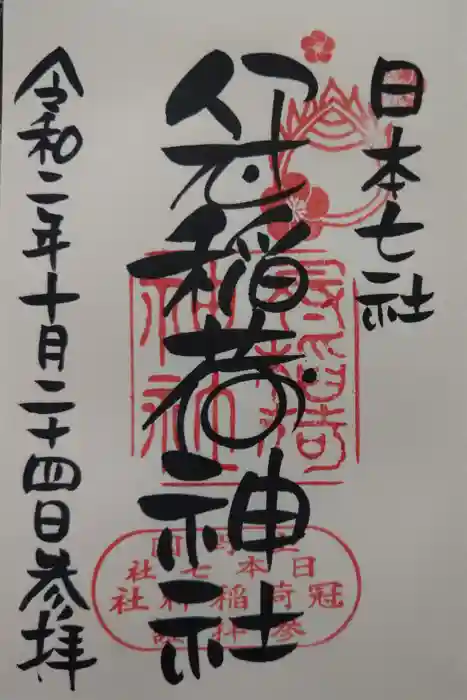 日本七社
冠稲荷神社
令和二年十月二十四日参拝
日本七社
冠稲荷神社